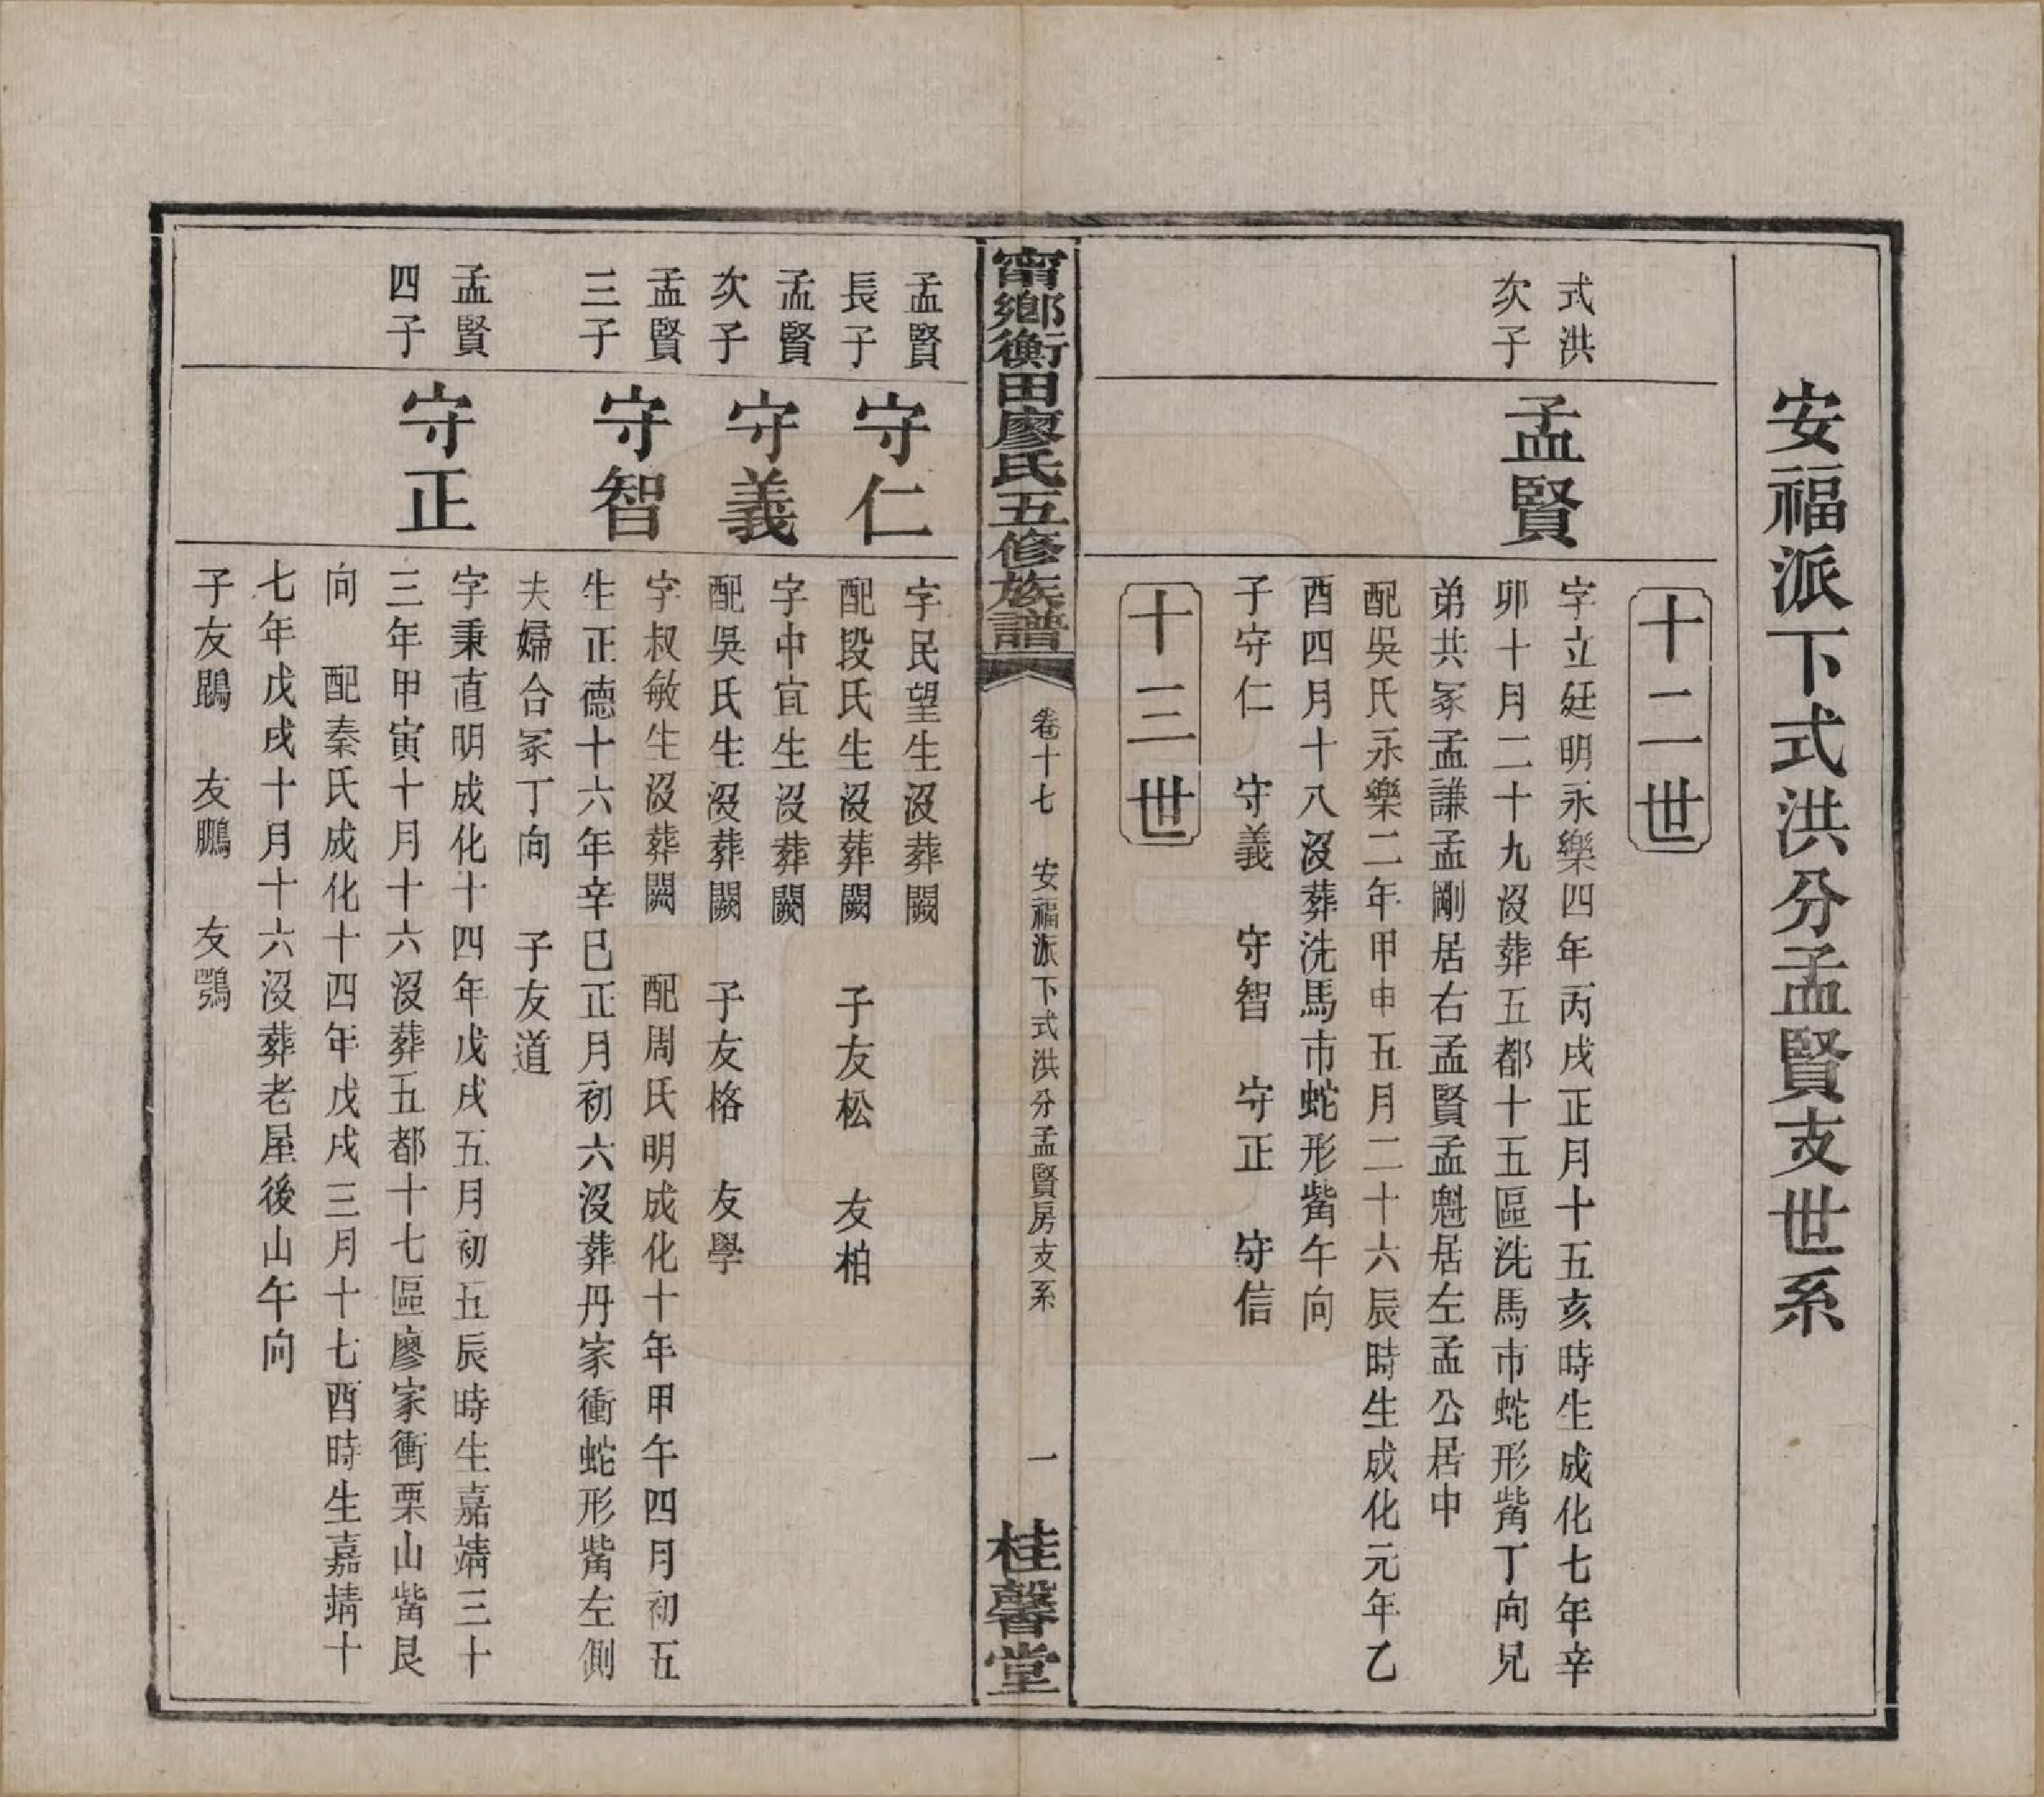 安福派下式洪分孟賢支世系
十二世
式洪
次子
孟賢
字立廷明永樂四年丙戌正月十五亥時生成化七年辛
卯十月二十九沒葬五都十五區洗馬市蛇形觜丁向兄
弟共冢孟謙孟剛居右孟賢孟魁居左孟公居中
配吳氏永樂二年甲申五月二十六辰時生成化元年乙
酉四月十八沒葬洗馬市蛇形觜午向
子守仁　守義　守智　守正　守信
十三世
甯鄉衡田廖氏五修族譜
卷十七　安福派下式洪分孟賢房支系
一
桂馨堂
孟賢
長子
守仁
字民望生沒葬闕
配段氏生沒葬闕　子友松　友柏
孟賢
次子
守義
字中宜生沒葬闕
配吳氏生沒葬闕　子友格　友學
孟賢
三子
守智
字叔敏生沒葬闕　配周氏明成化十年甲午四月初五
生正德十六年辛巳正月初六沒葬丹家衝蛇形觜左側
夫婦合冢丁向　子友道
孟賢
四子
守正
字秉直明成化十四年戊戌五月初五辰時生嘉靖三十
三年甲寅十月十六沒葬五都十七區廖家衝栗山觜艮
向　配秦氏成化十四年戊戌三月十七酉時生嘉靖十
七年戊戌十月十六沒葬老屋後山午向
子友鵾　友鵬　友鶚